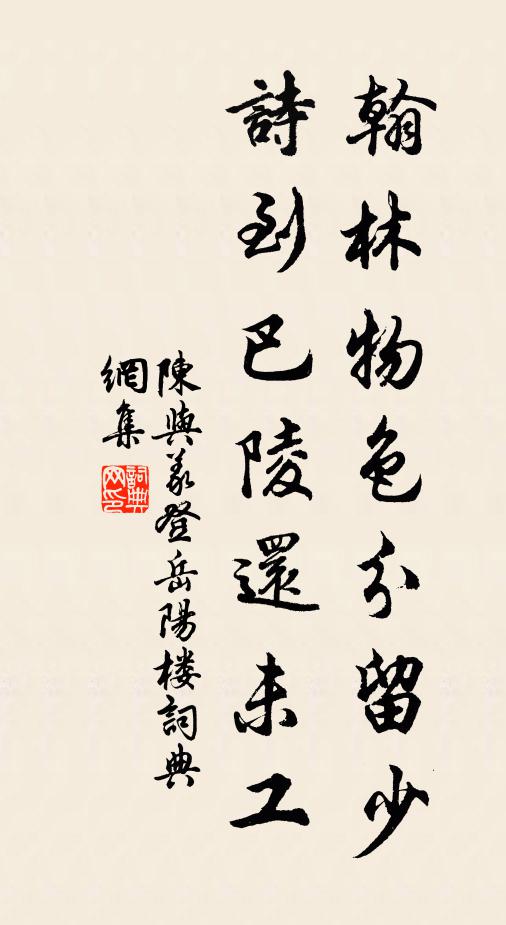 翰林物色分留少
詩到巴陵還未工
陳與義登岳陽楼詞典
網集
詞典
网印